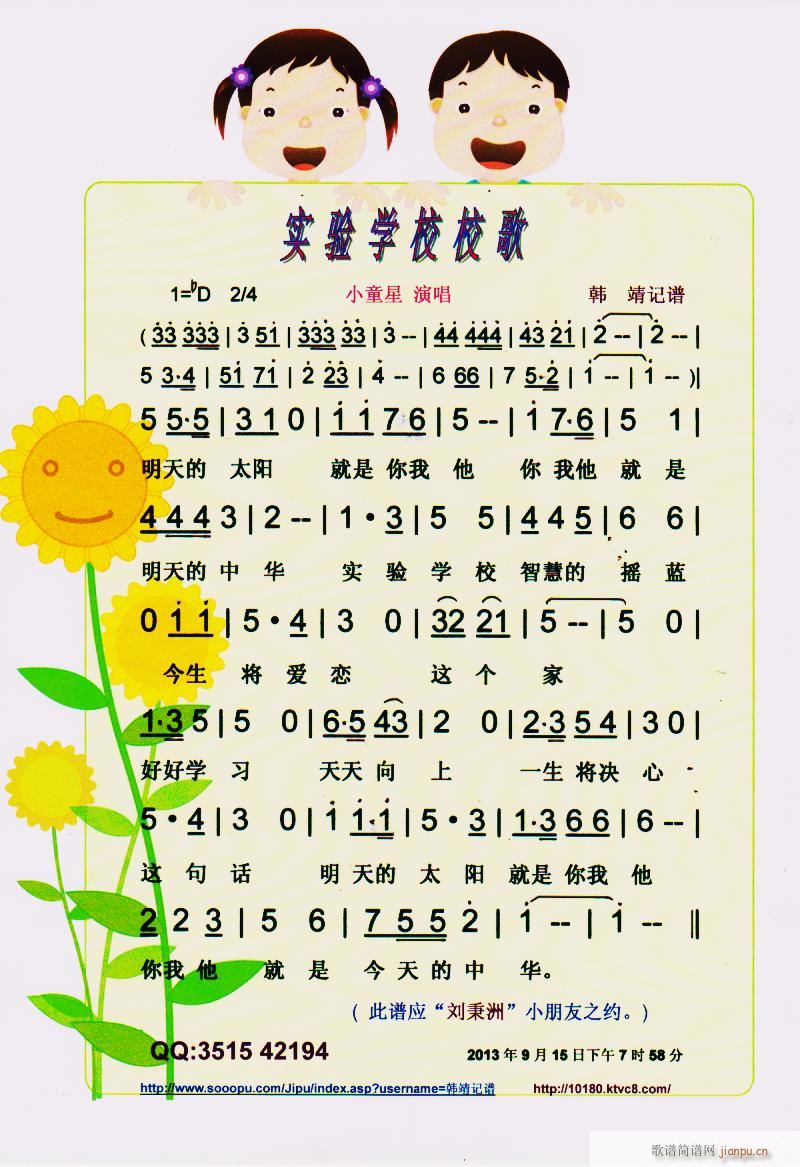 实验学校校歌
1=♭D 2/4 小童星 演唱 韩 靖记谱
(33 333 | 3 51 | 333 33 | 3 -- | 44 444 | 43 21 | 2 -- | 2 -- |
5 3·4 | 51 71 | 2 23 | 4 -- | 6 66 | 7 5·2 | 1 -- | 1 -- )|
5 5·5 | 3 1 0 | 1 1 7 6 | 5 -- | 1 7·6 | 5 1 |
明天的 太阳 就是 你我 他 你 我他 就 是
4 4 4 3 | 2 -- | 1 · 3 | 5 5 | 4 4 5 | 6 6 |
明天的 中 华 实 验 学 校 智慧的 摇 蓝
0 1 1 | 5 · 4 | 3 0 | 32 21 | 5 -- | 5 0 |
今生 将 爱 恋 这 个 家
1·3 5 | 5 0 | 6·5 43 | 2 0 | 2·3 5 4 | 3 0 |
好好学 习 天天 向 上 一生 将决 心
5 · 4 | 3 0 | 1 1·1 | 5 · 3 | 1·3 6 6 | 6 -- |
这 句 话 明 天的 太 阳 就是 你我 他
2 2 3 | 5 6 | 7 5 5 2 | 1 -- | 1 -- ‖
你我 他 就 是 今 天 的 中 华。
( 此谱应“刘秉洲”小朋友之约。)
QQ:3515 42194 2013 年 9 月 15 日下午 7 时 58 分
http://www.sooopu.com/Jipu/index.asp?username=韩靖记谱 http://10180.ktvc8.com/
歌谱简谱网 jianpu.cn